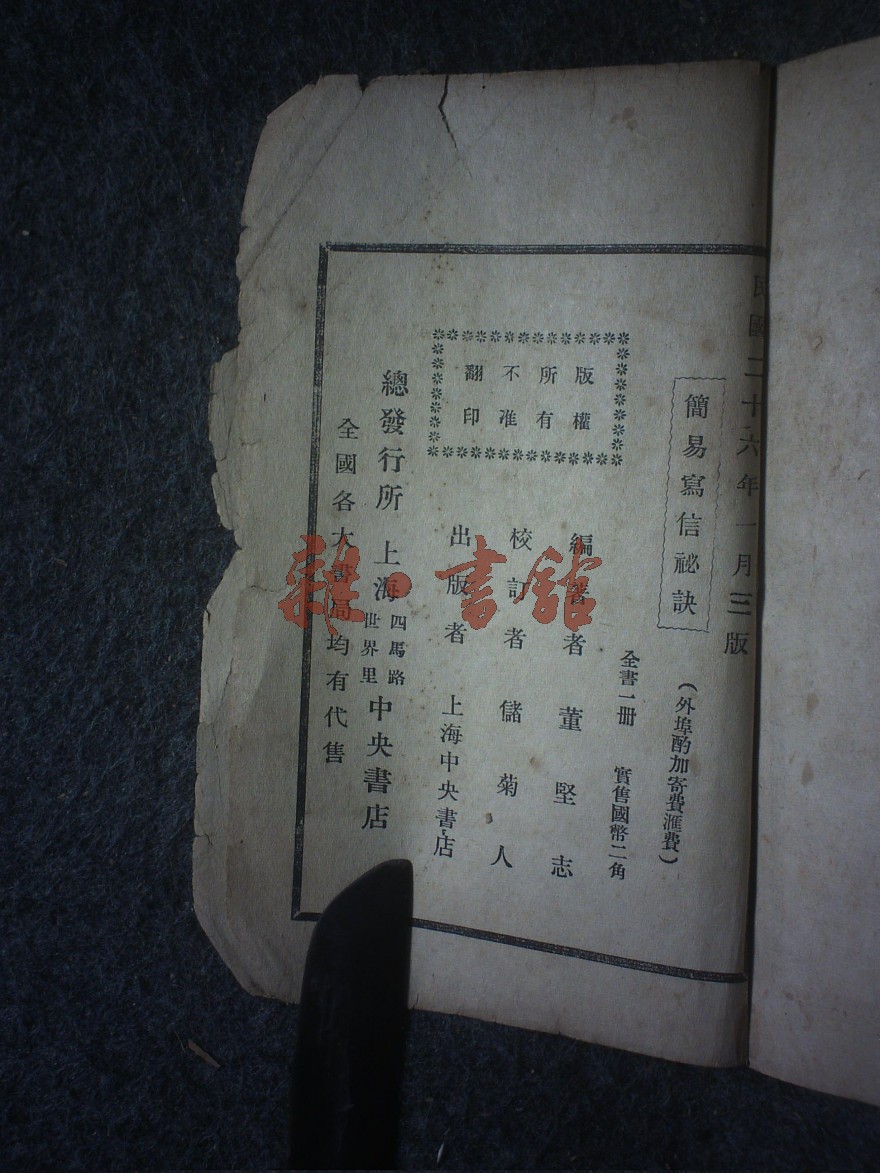 民國二十六年一月三版
簡易寫信祕訣
（外埠酌加寄費滙費）
全書一冊　實售國幣二角
版權
所有
不准
翻印
編著者　董堅志
校訂者　儲菊人
出版者　上海中央書店
總發行所　上海四馬路世界里中央書店
全國各大書局均有代售
雜·書館